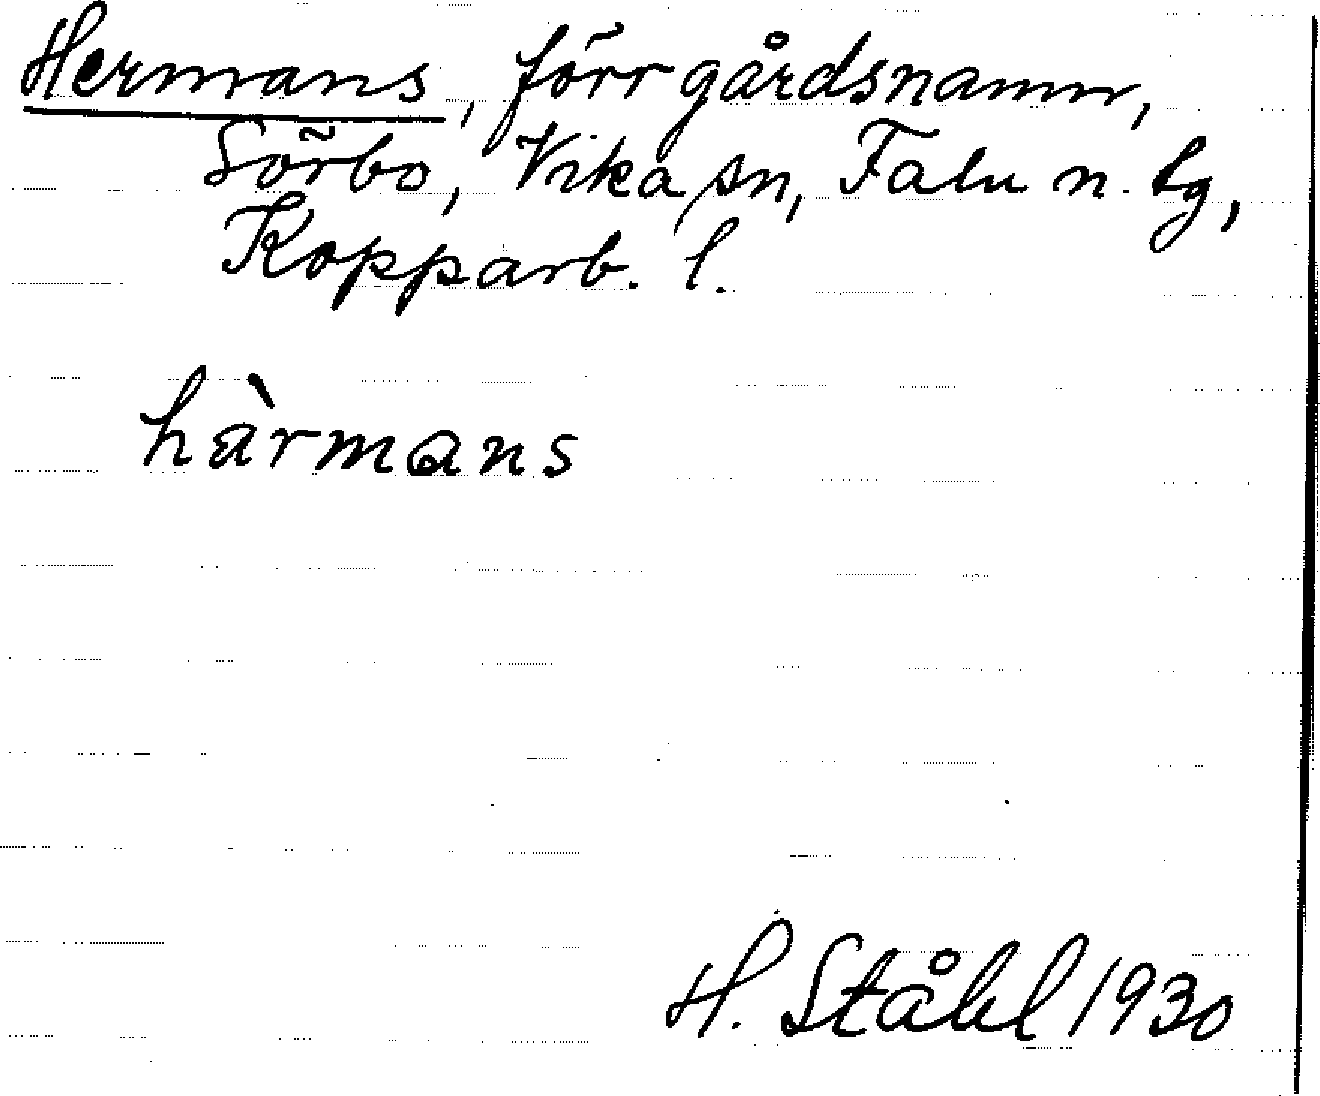 Hermans, förr gårdsnamn,
Sörbo, Vika sn, Falu n. tg,
Kopparb. l.
hàrmans
H. Ståhl 1930